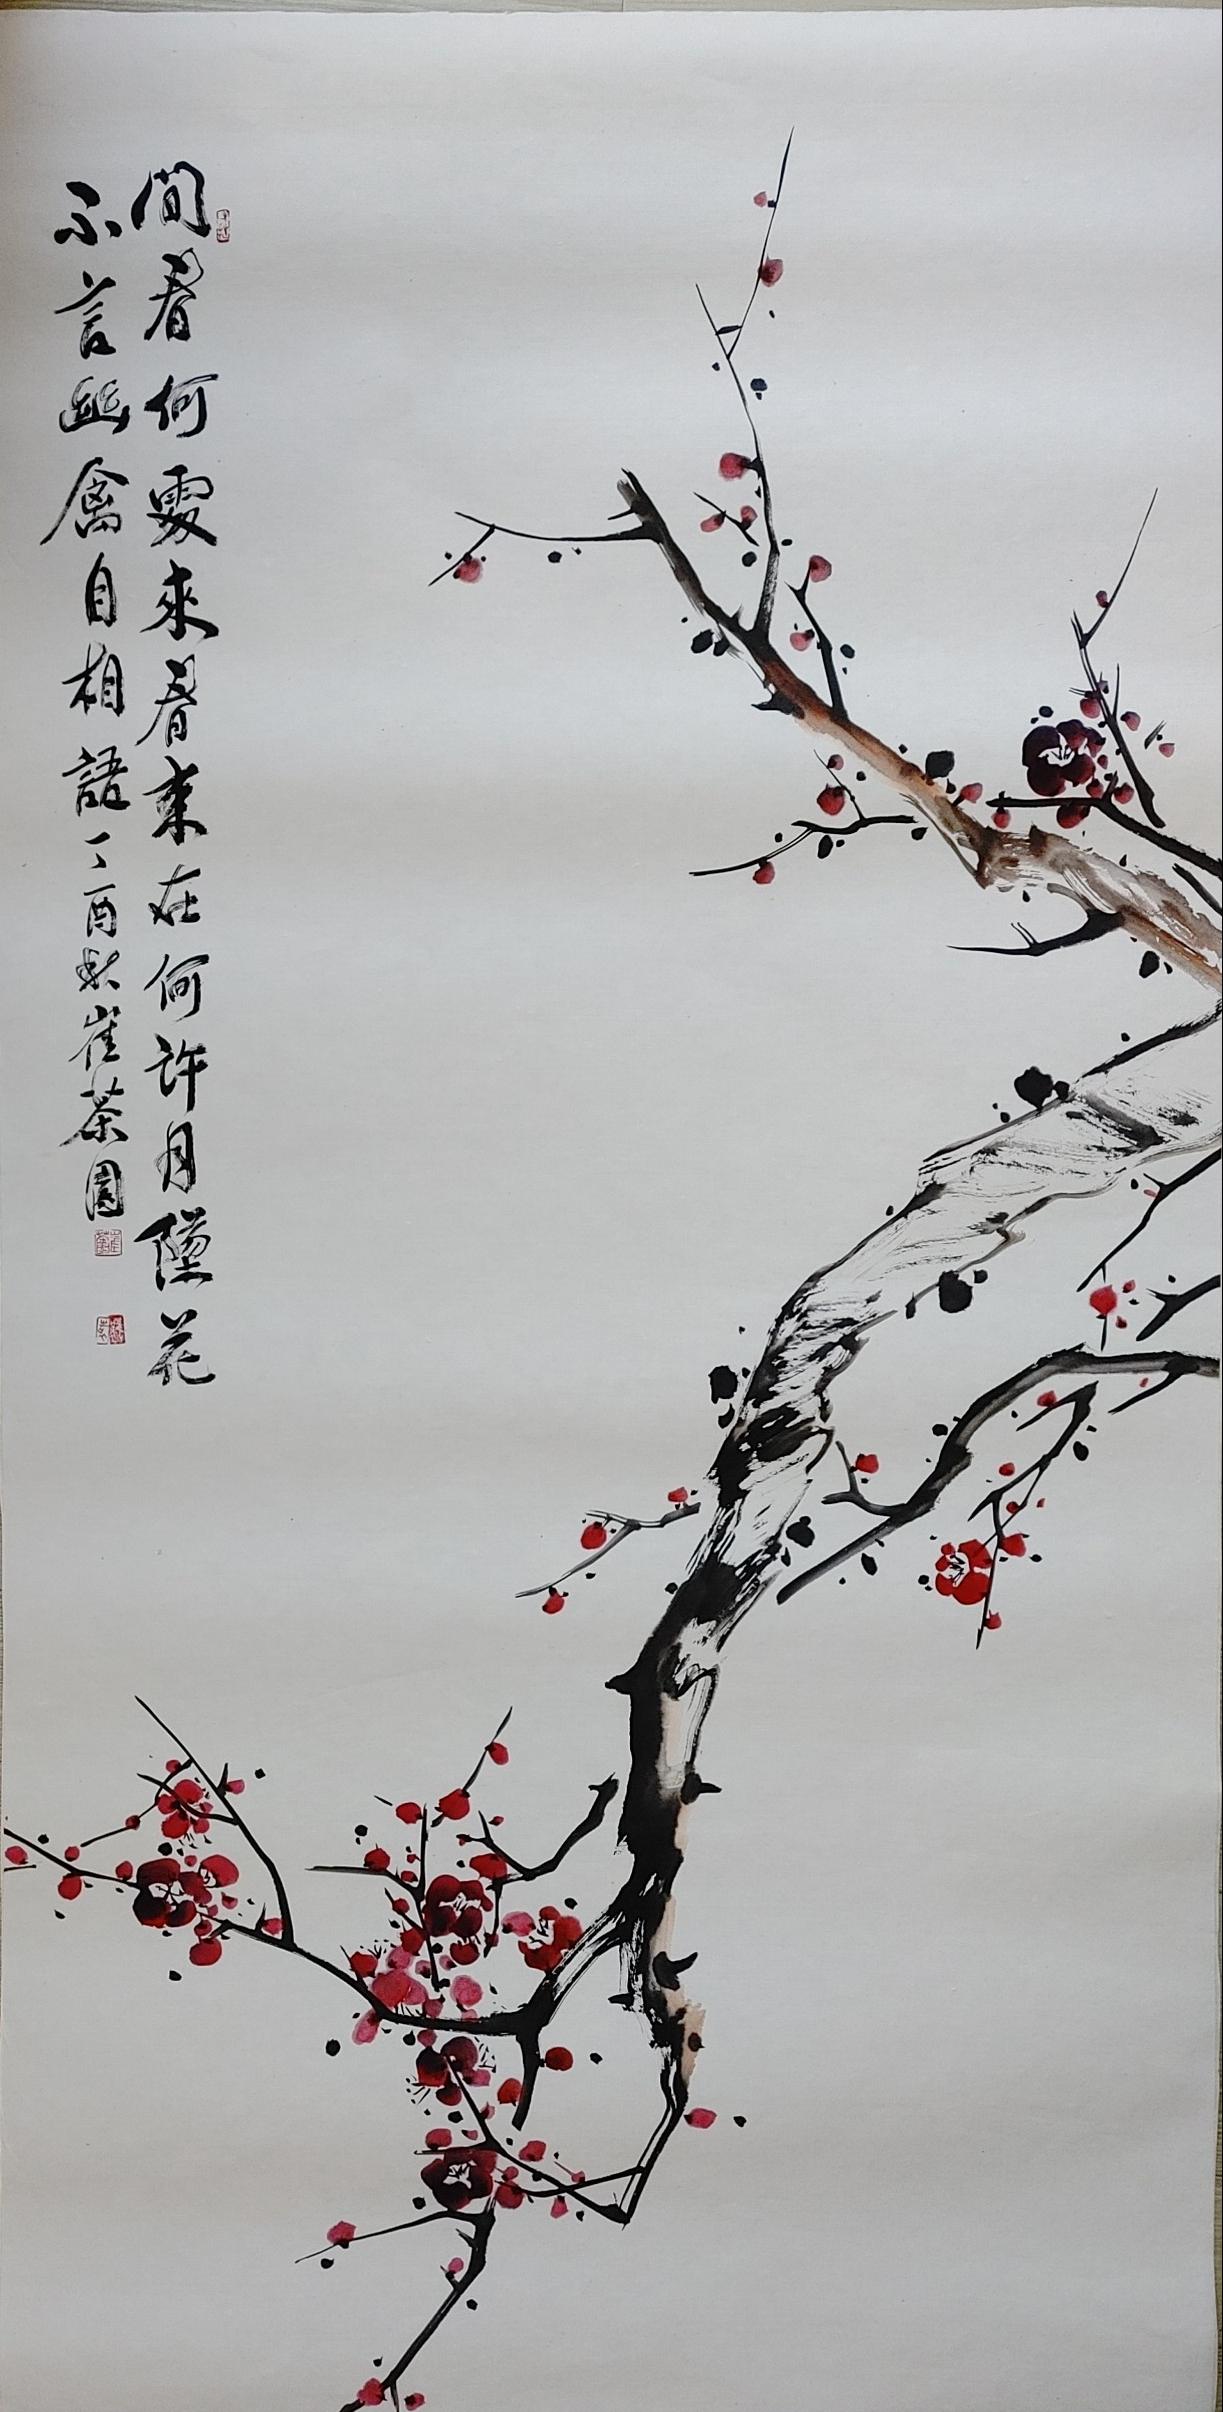 間看何處來看來在何許月墮花
不言幽禽自相語丁酉秋崔茶園